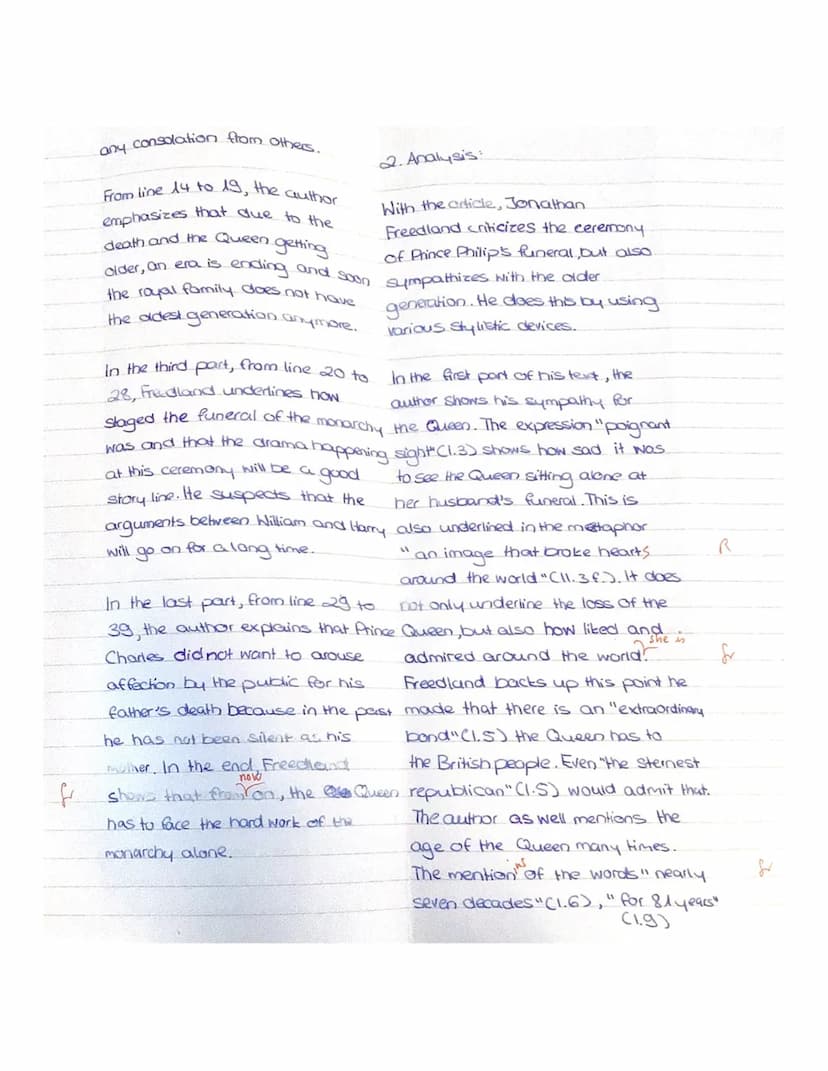 any consolation from others.
From line 14 to 19, the author
emphasizes that due to the
death and the Queen getting
older, an era is ending and soon
the royal family does not have
the oldest generation anymore.
In the third part, from line 20 to
28, Freedland underlines how
staged the funeral of the monarchy
was and that the drama happening
at this ceremony will be a good
story line. He suspects that the
arguments between William and Harry
will go on for a long time.
In the last part, from line 29 to
39, the author explains that Prince
Charles did not want to arouse
affection by the public for his
father's death because in the past
he has not been silent as his
mother. In the end, Freedland
now
fr shows that from on, the Queen
has to face the hard work of the
monarchy alone.
2. Analysis:
With the article, Jonathan
Freedland criticizes the ceremony
of Prince Philip's funeral, but also
sympathizes with the older
generation. He does this by using
various stylistic devices.
In the first part of his text, the
author shows his sympathy for
the Queen. The expression "poignant
sight" (l.3) shows how sad it was
to see the Queen sitting alone at
her husband's funeral. This is
also underlined in the metaphor
"an image that broke hearts R
around the world" (ll. 3 f.). It does
not only underline the loss of the
Queen, but also how liked and
she is
admired around the world. fr
Freedland backs up this point he
made that there is an "extraordinary
bond" (l.5) the Queen has to
the British people. Even "the sternest
republican" (l.5) would admit that.
The author as well mentions the
age of the Queen many times.
ing
The mention of the words "nearly fr
seven decades" (l.6), "for 81 years"
(l.9)